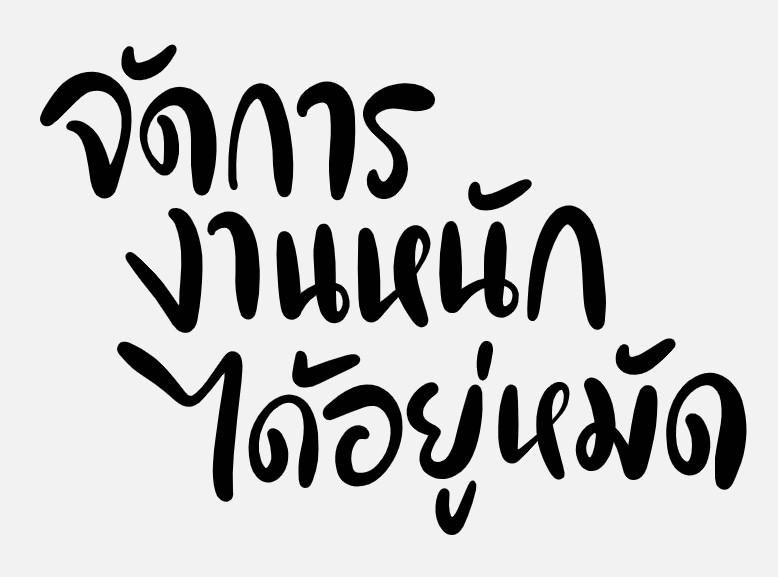 จัดการ
งานหนัก
ได้อยู่หมัด